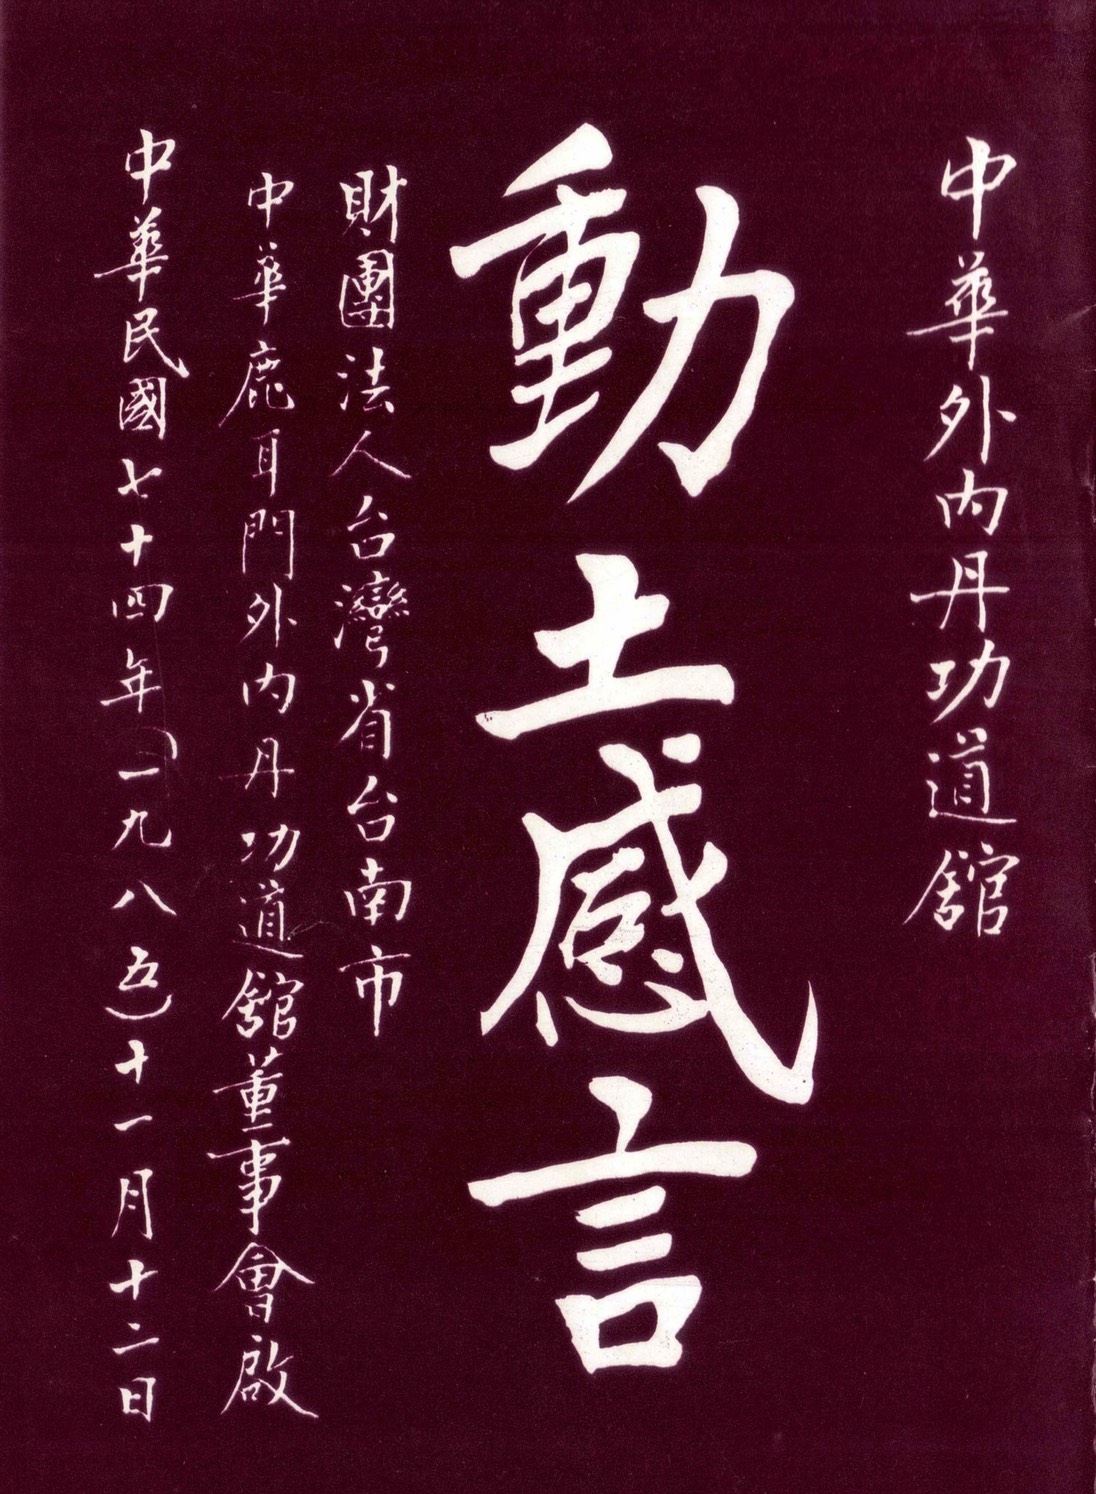 中華外内丹功道舘
動土感言
財團法人台灣省台南市
中華鹿耳門外内丹功道舘董事會啟
中華民國七十四年(一九八五)十一月十二日